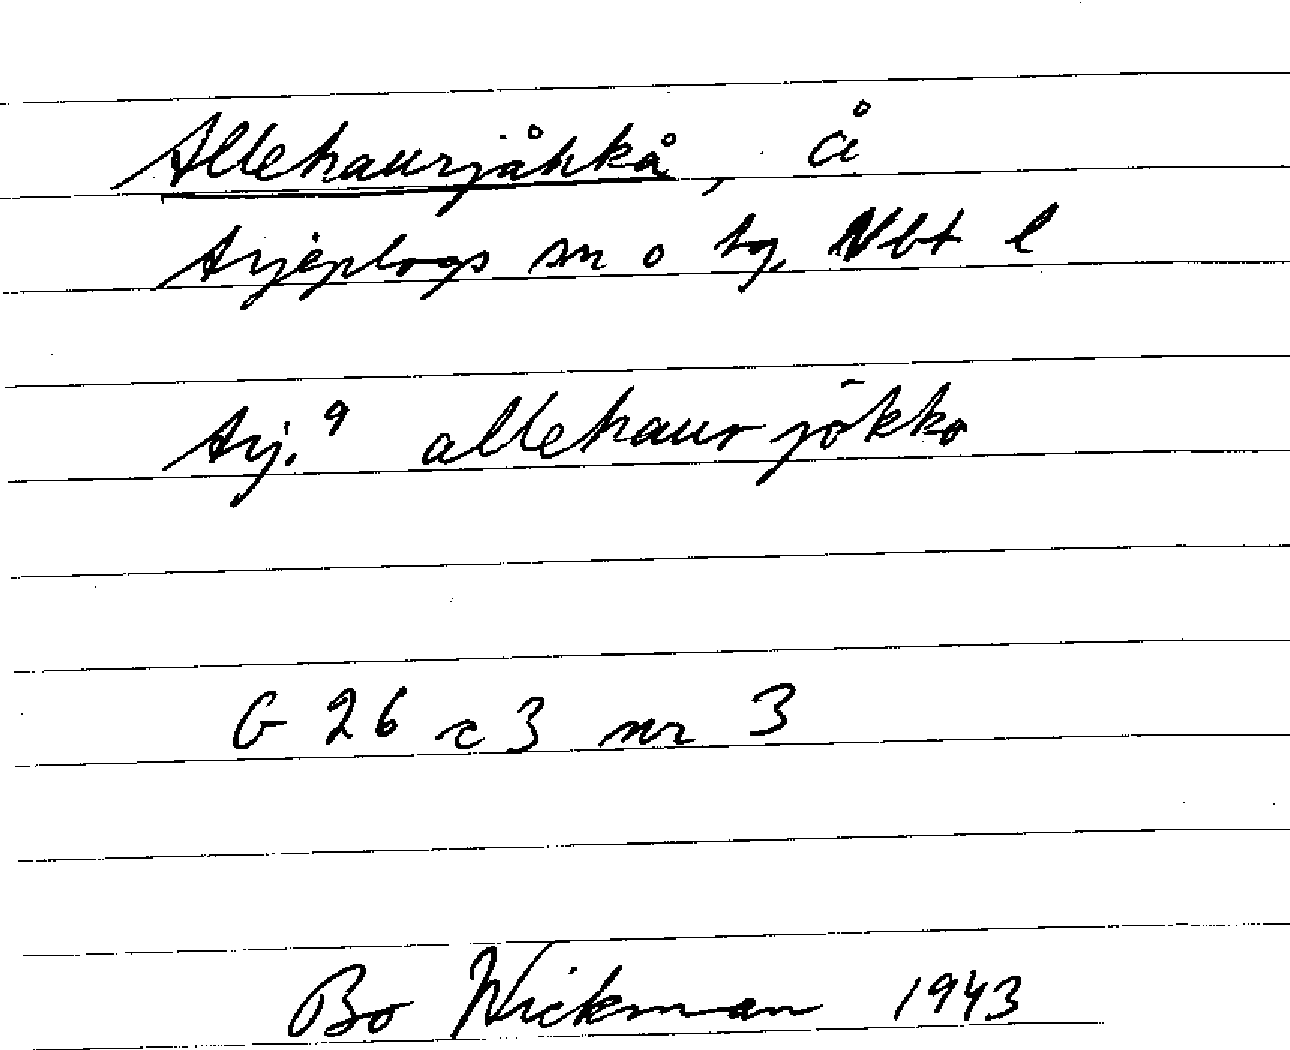 Allehaurjåhkå, å
Arjeplogs sn o tg, Nbt l
Arj. 9 allehaur jōkko
G 26 c 3 nr 3
Bo Wickman 1943